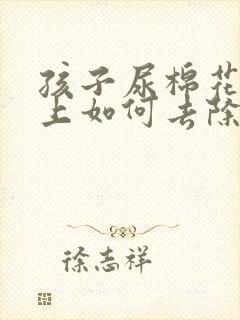 孩子尿棉花
上如何去除
徐志祥